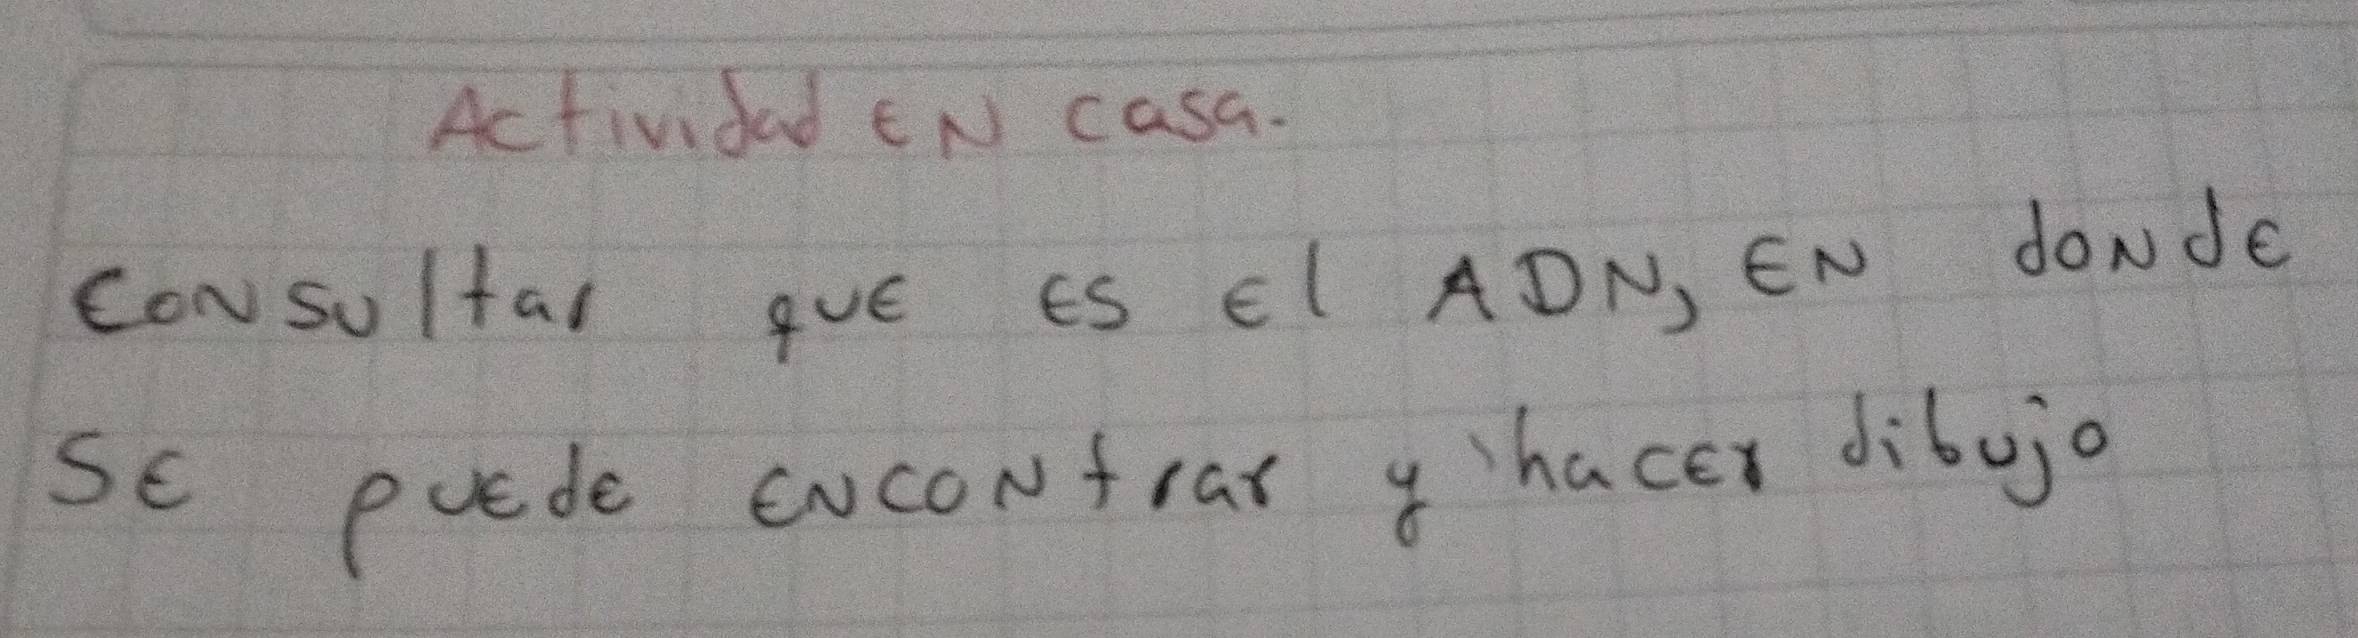 Actividad EN casa.
CONSultar que ES El ADN, EN donde
SE puede ENCONtrar y hacer dibujo